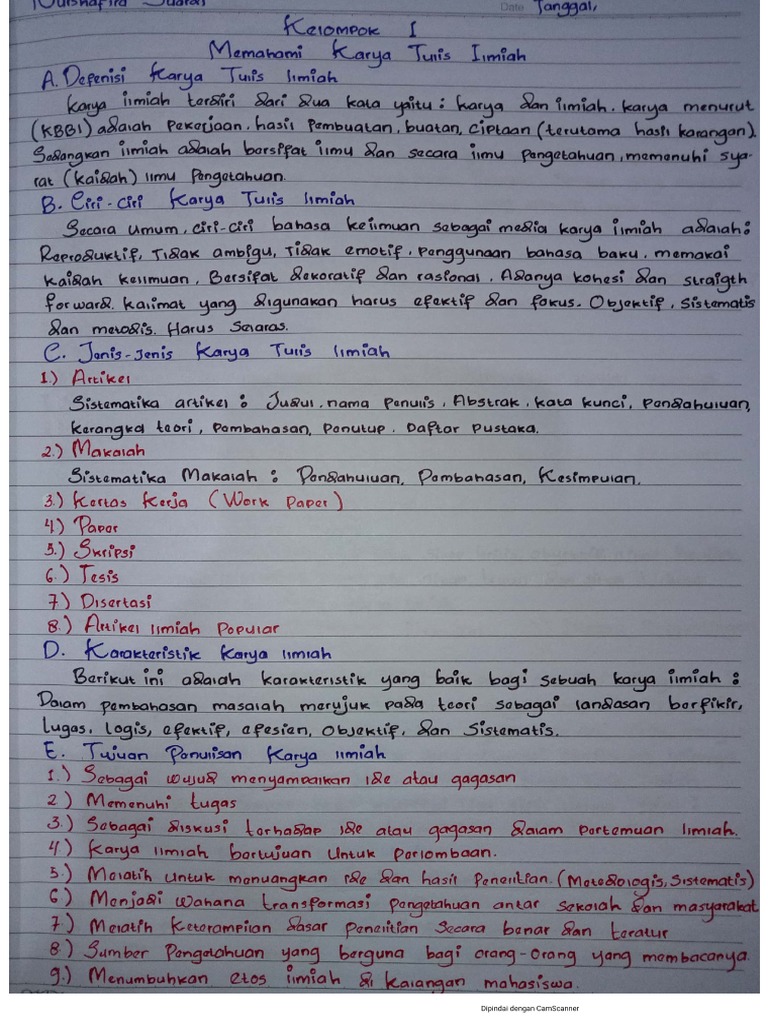 Date Tanggal,
Kelompok I
Memahami Karya Tulis Ilmiah
A. Depenisi Karya Tulis Ilmiah
Karya ilmiah terdiri dari dua kata yaitu : karya dan ilmiah. karya menurut
(KBBI) adalah pekerjaan, hasil pembuatan, buatan, ciptaan (terutama hasil karangan).
Sedangkan ilmiah adalah bersifat ilmu dan secara ilmu pengetahuan, memenuhi sya-
rat (kaidah) ilmu pengetahuan.
B. Ciri-ciri Karya Tulis Ilmiah
Secara umum, ciri-ciri bahasa keilmuan sebagai media karya ilmiah adalah :
Reproduktif, Tidak ambigu, Tidak emotif, penggunaan bahasa baku, memakai
kaidah keilmuan, Bersifat dekoratif dan rasional, Adanya kohesi dan straigth
forward. kalimat yang digunakan harus efektif dan fokus. Objektif, sistematis
dan metodis. Harus Selaras.
C. Jenis-jenis Karya Tulis Ilmiah
1.) Artikel
Sistematika artikel : Judul, nama penulis, Abstrak, kata kunci, pendahuluan,
kerangka teori, pembahasan, penutup. Daftar pustaka.
2.) Makalah
Sistematika Makalah : Pendahuluan, Pembahasan, Kesimpulan.
3.) Kertas Kerja (Work Paper)
4) Paper
5.) Skripsi
6.) Tesis
7) Disertasi
8.) Artikel Ilmiah Popular
D. Karakteristik Karya Ilmiah
Berikut ini adalah karakteristik yang baik bagi sebuah karya ilmiah :
Dalam pembahasan masalah merujuk pada teori sebagai landasan berfikir,
lugas, logis, efektif, efesien, Objektif, dan Sistematis.
E. Tujuan Penulisan Karya Ilmiah
1.) Sebagai wujud menyampaikan ide atau gagasan
2) Memenuhi tugas
3.) Sebagai diskusi terhadap ide atau gagasan dalam pertemuan ilmiah.
4) Karya ilmiah bertujuan untuk perlombaan.
5.) Melatih untuk menuangkan ide dan hasil penelitian. (Metodologis, Sistematis)
6) Menjadi wahana transformasi pengetahuan antar sekolah dan masyarakat
7.) Melatih keterampilan dasar penelitian secara benar dan teratur
8.) Sumber Pengetahuan yang berguna bagi orang-orang yang membacanya.
9.) Menumbuhkan etos ilmiah di kalangan mahasiswa.
Dipindai dengan CamScanner